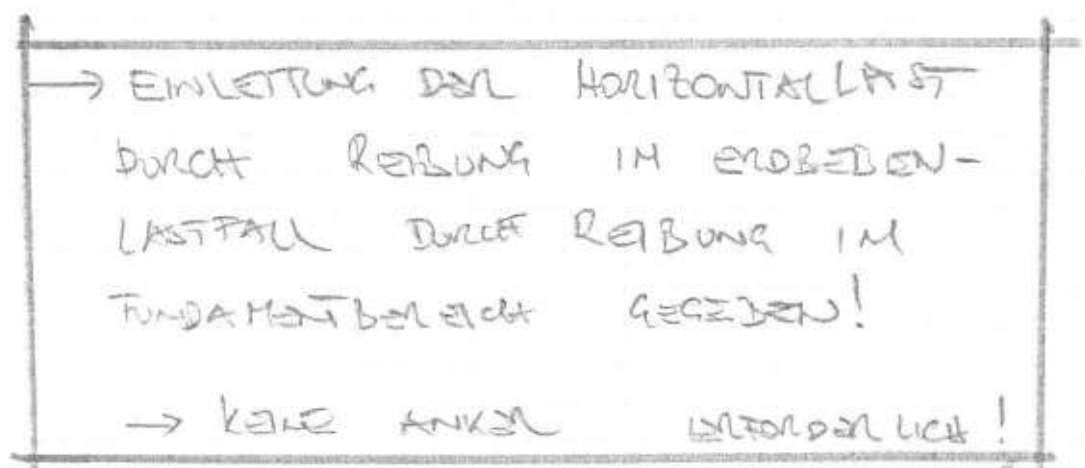 → EINLEITUNG DER HORIZONTALLAST
DURCH REIBUNG IM ERDBEBEN-
LASTFALL DURCH REIBUNG IM
FUNDAMENTBEREICH GEGEBEN!
→ KEINE ANKER ERFORDERLICH!